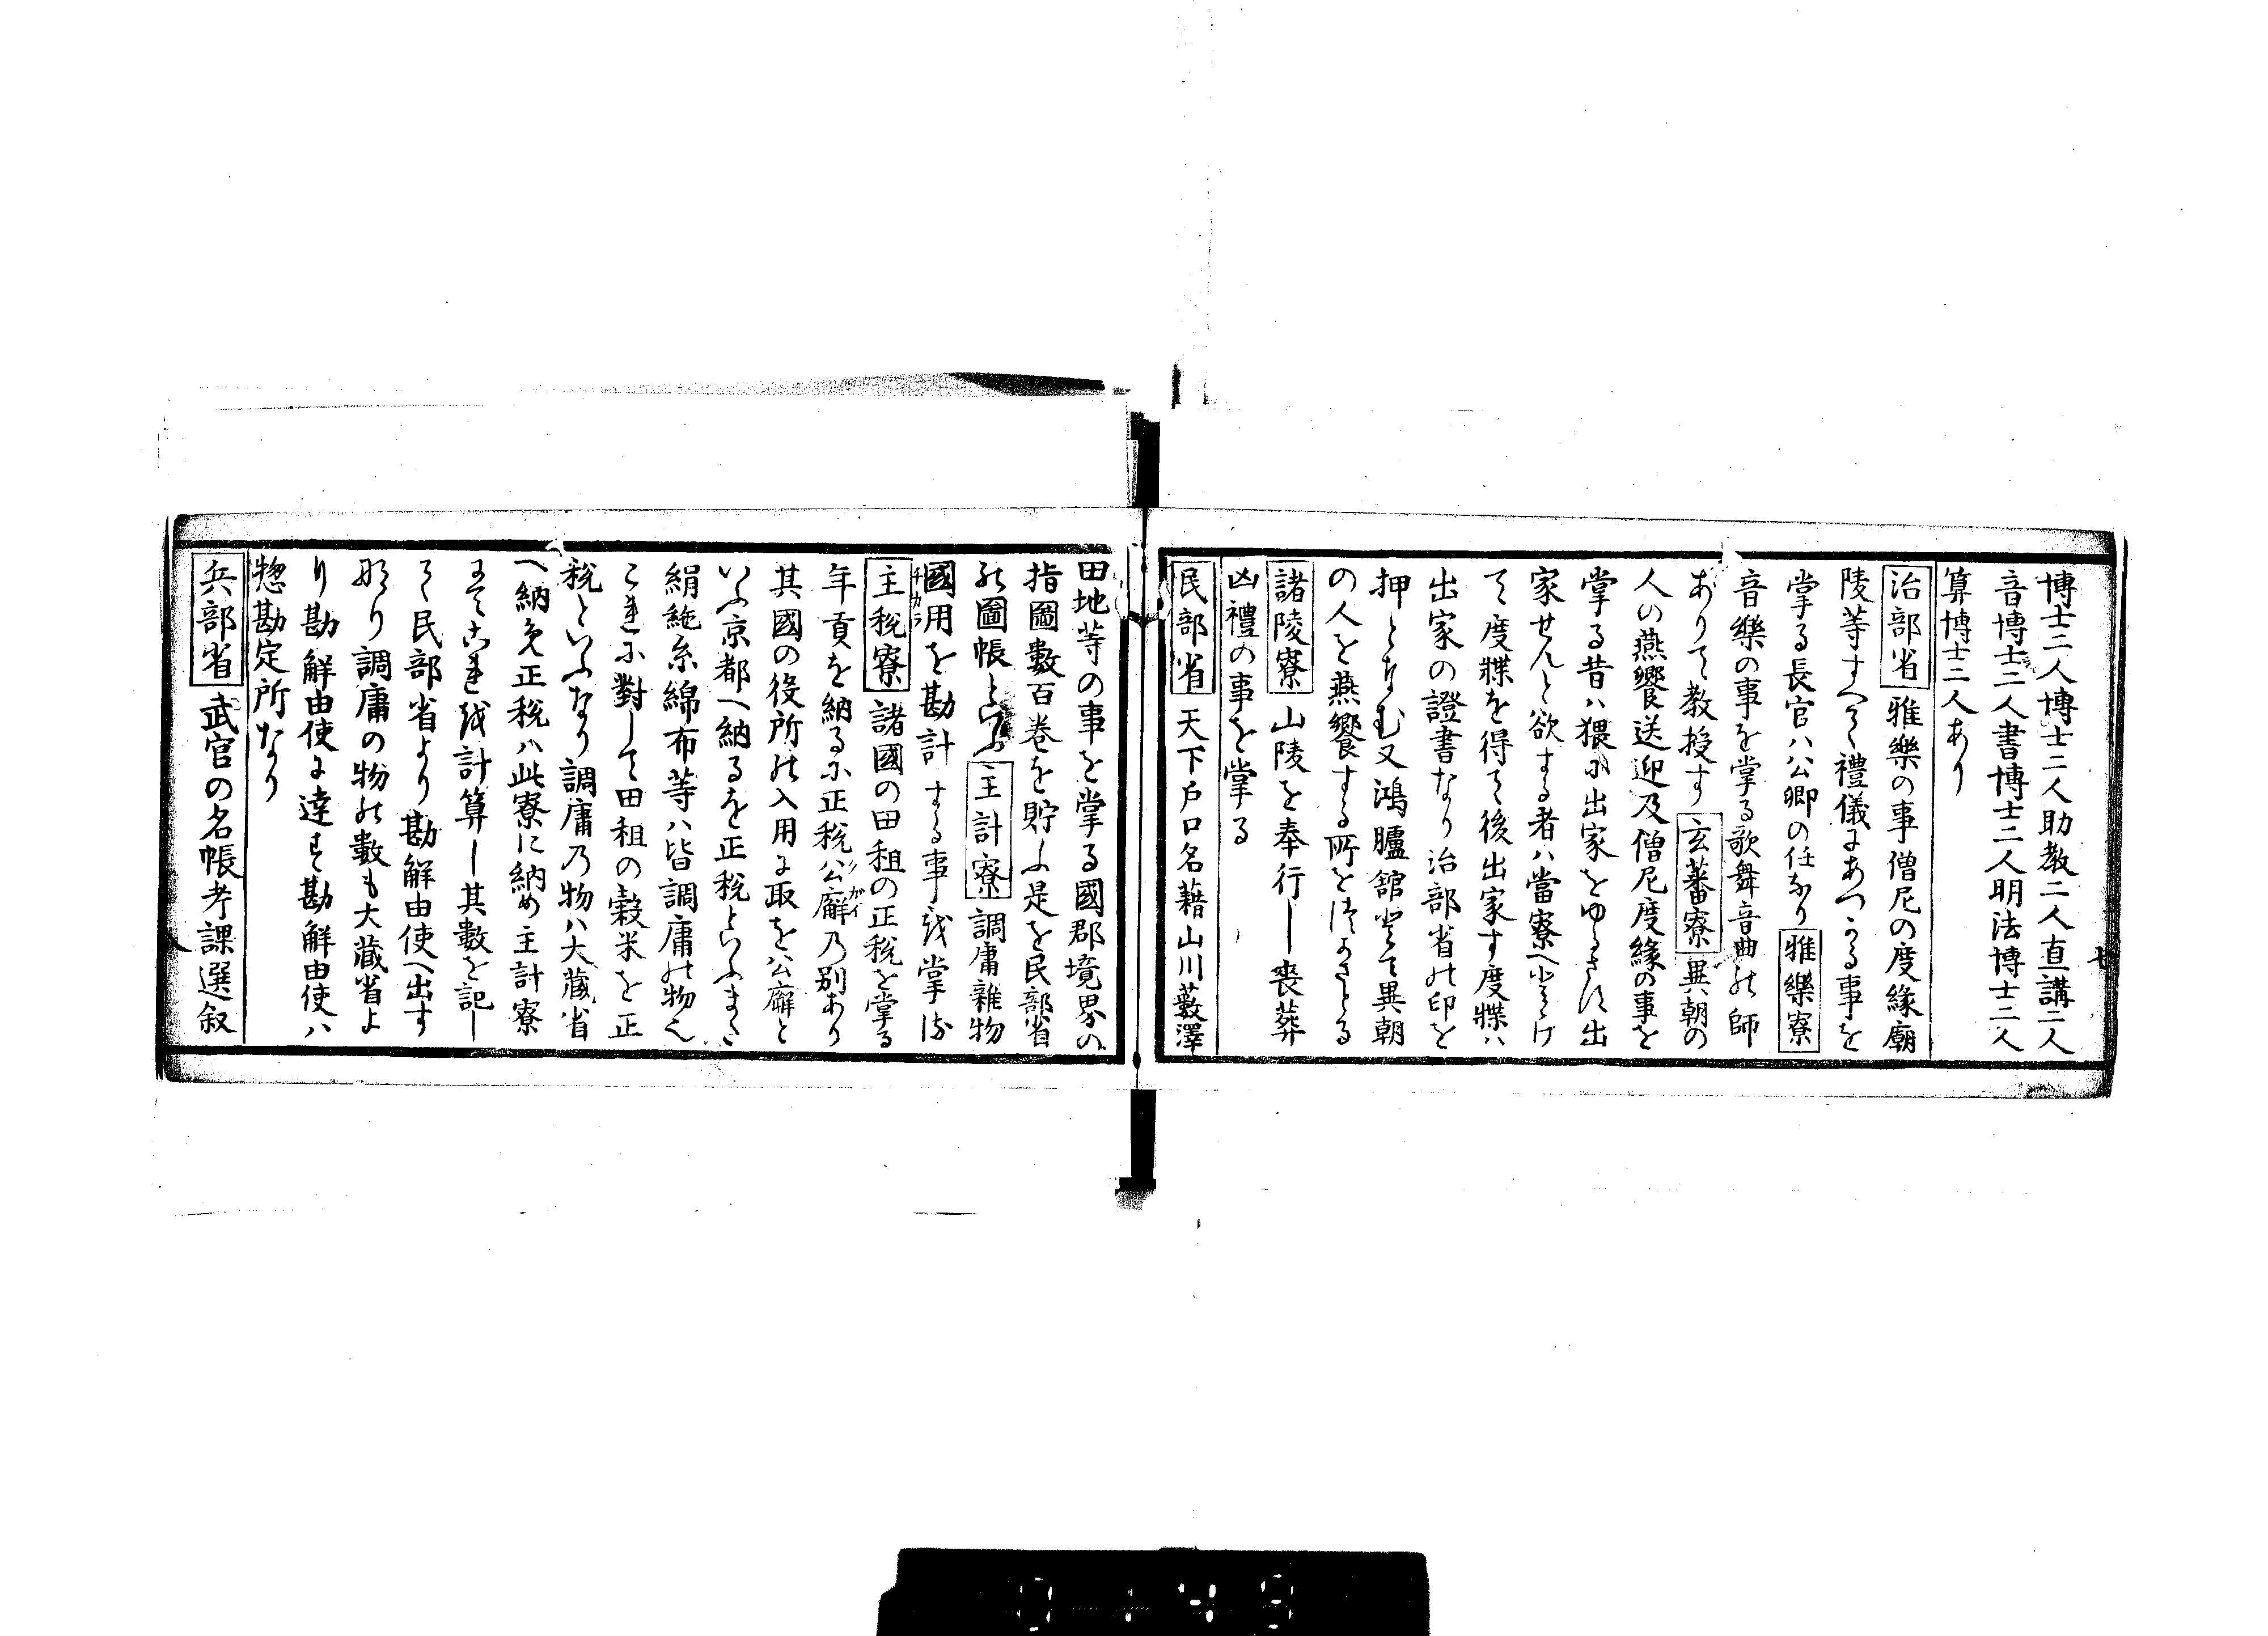 博士二人博士二人助教二人直講二人
音博士二人書博士二人明法博士二人
算博士二人あり
治部省 雅樂の事僧尼の度緣廟
陵等すへて禮儀にあつかる事を
掌る長官ハ公卿の任なり 雅樂寮
音樂の事を掌る歌舞音曲の師
ありて教授す 玄蕃寮 異朝の
人の燕饗送迎及僧尼度緣の事を
掌る昔ハ猥に出家をゆるさす出
家せんと欲する者ハ當寮へとゝけ
て度牒を得て後出家す度牒ハ
出家の證書なり治部省の印を
押となむ又鴻臚舘とて異朝
の人を燕饗する所をつかさとる
諸陵寮 山陵を奉行し喪葬
凶禮の事を掌る
民部省 天下戸口名藉山川藪澤
七
田地等の事を掌る國郡境界の
指圖數百巻を貯ふ是を民部省
の圖帳といふ 主計寮 調庸雜物
國用を勘計する事を掌る
主税寮 チカラ 諸國の田租の正税を掌る
年貢を納るに正税公廨 クガイ 乃別あり
其國の役所の入用に取を公廨と
いふ京都へ納るを正税といふまた
絹絁糸綿布等ハ皆調庸の物也
これに對して田租の穀米を正
税といふなり調庸乃物ハ大藏省
へ納め正税ハ此寮に納め主計寮
にてこれを計算し其數を記し
て民部省より勘解由使へ出す
なり調庸の物の數も大藏省よ
り勘解由使に達す勘解由使ハ
惣勘定所なり
兵部省 武官の名帳考課選叙
八